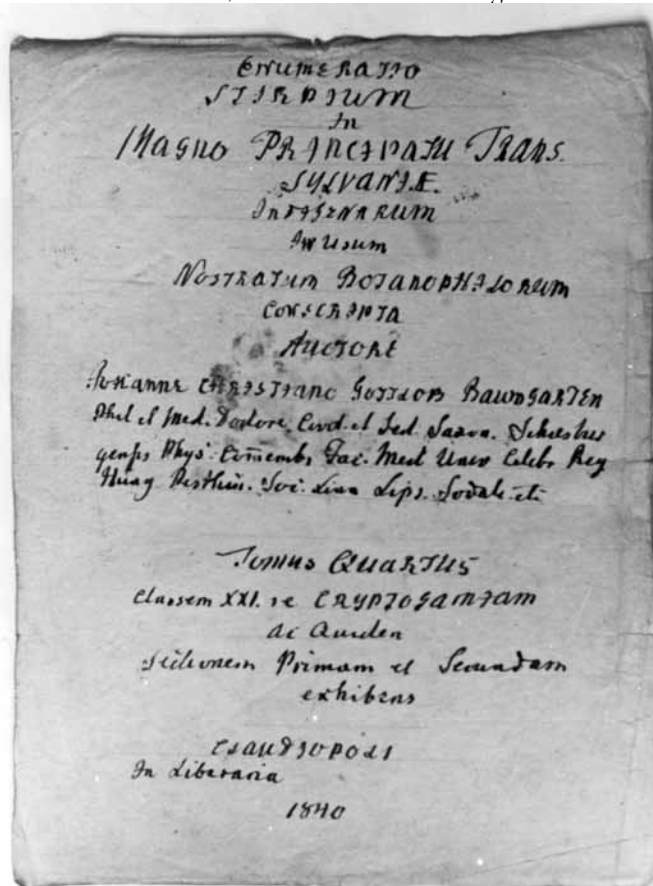 ENUMERATIO
STIRPIUM
In
MAGNO PRINCIPATU TRANS.
SYLVANIÆ.
INDIGENARUM
IN Usum
NOSTRATUM BOTANOPHILORUM
CONSCRIPTA
AUCTORE
CHRISTIANO GOTTLOB BAUMGARTEN
Phil et Med. Doctore. Civit. et Sed. Saxon.
Phys. Fac. Med Univ Celebr Reg
Hung Soc. Linn Lips. Sodale
TOMUS QUARTUS
Classem XXI. CRYPTOGAMIAM
ac
Sectionem Primam et Secundam
exhibens
CLAUDIOPOLI
In Libraria
1840